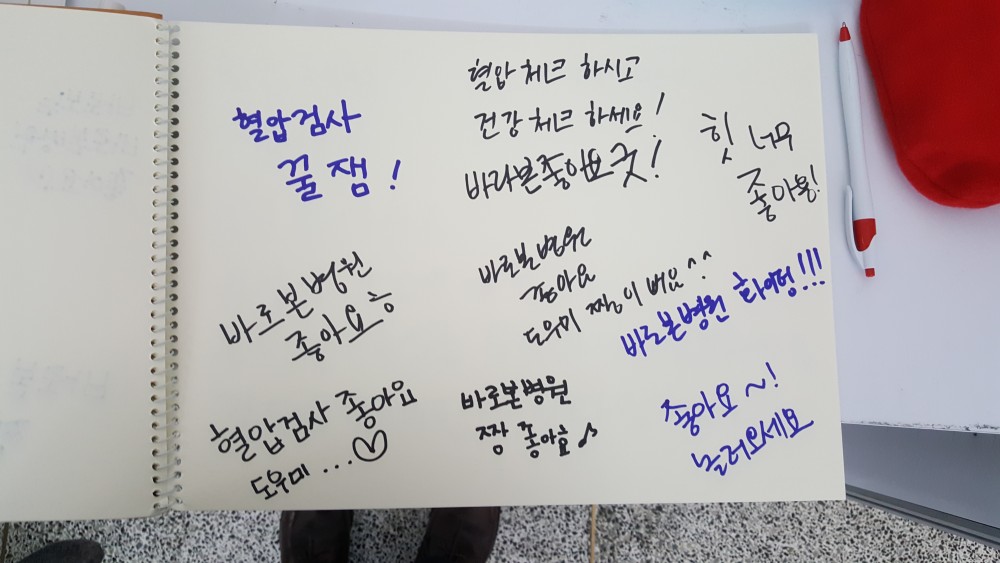 혈압검사
꿀잼!
혈압체크 하시고
건강체크 하세요!
바라본좋아요굿!
힛 너무
좋아용!
바로본병원
좋아요
바로본병원
좋아요
도우미 찡이 뻐요^^
바로본병원 화이팅!!!
혈압검사 좋아요
도우미...♡
바로본병원
짱 좋아효♪
좋아요~!
놀러오세요